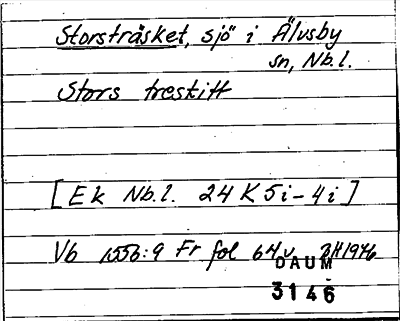 Storsträsket, sjö i Älvsby
sn, Nb.l.
Stors treskitt
[Ek Nb.l. 24 K 5i-4i]
Vb 1556:9 Fr fol 64v
DAUM
3146